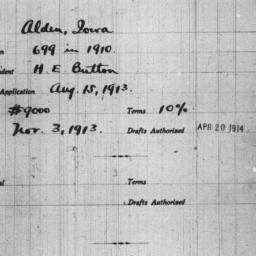 Alden, Iowa
699 in 1910.
H. E. Button
Application Aug. 15, 1913.
#9000 Terms 10%
Nov. 3, 1913. Drafts Authorized APR 20 1914
Terms
Drafts Authorized